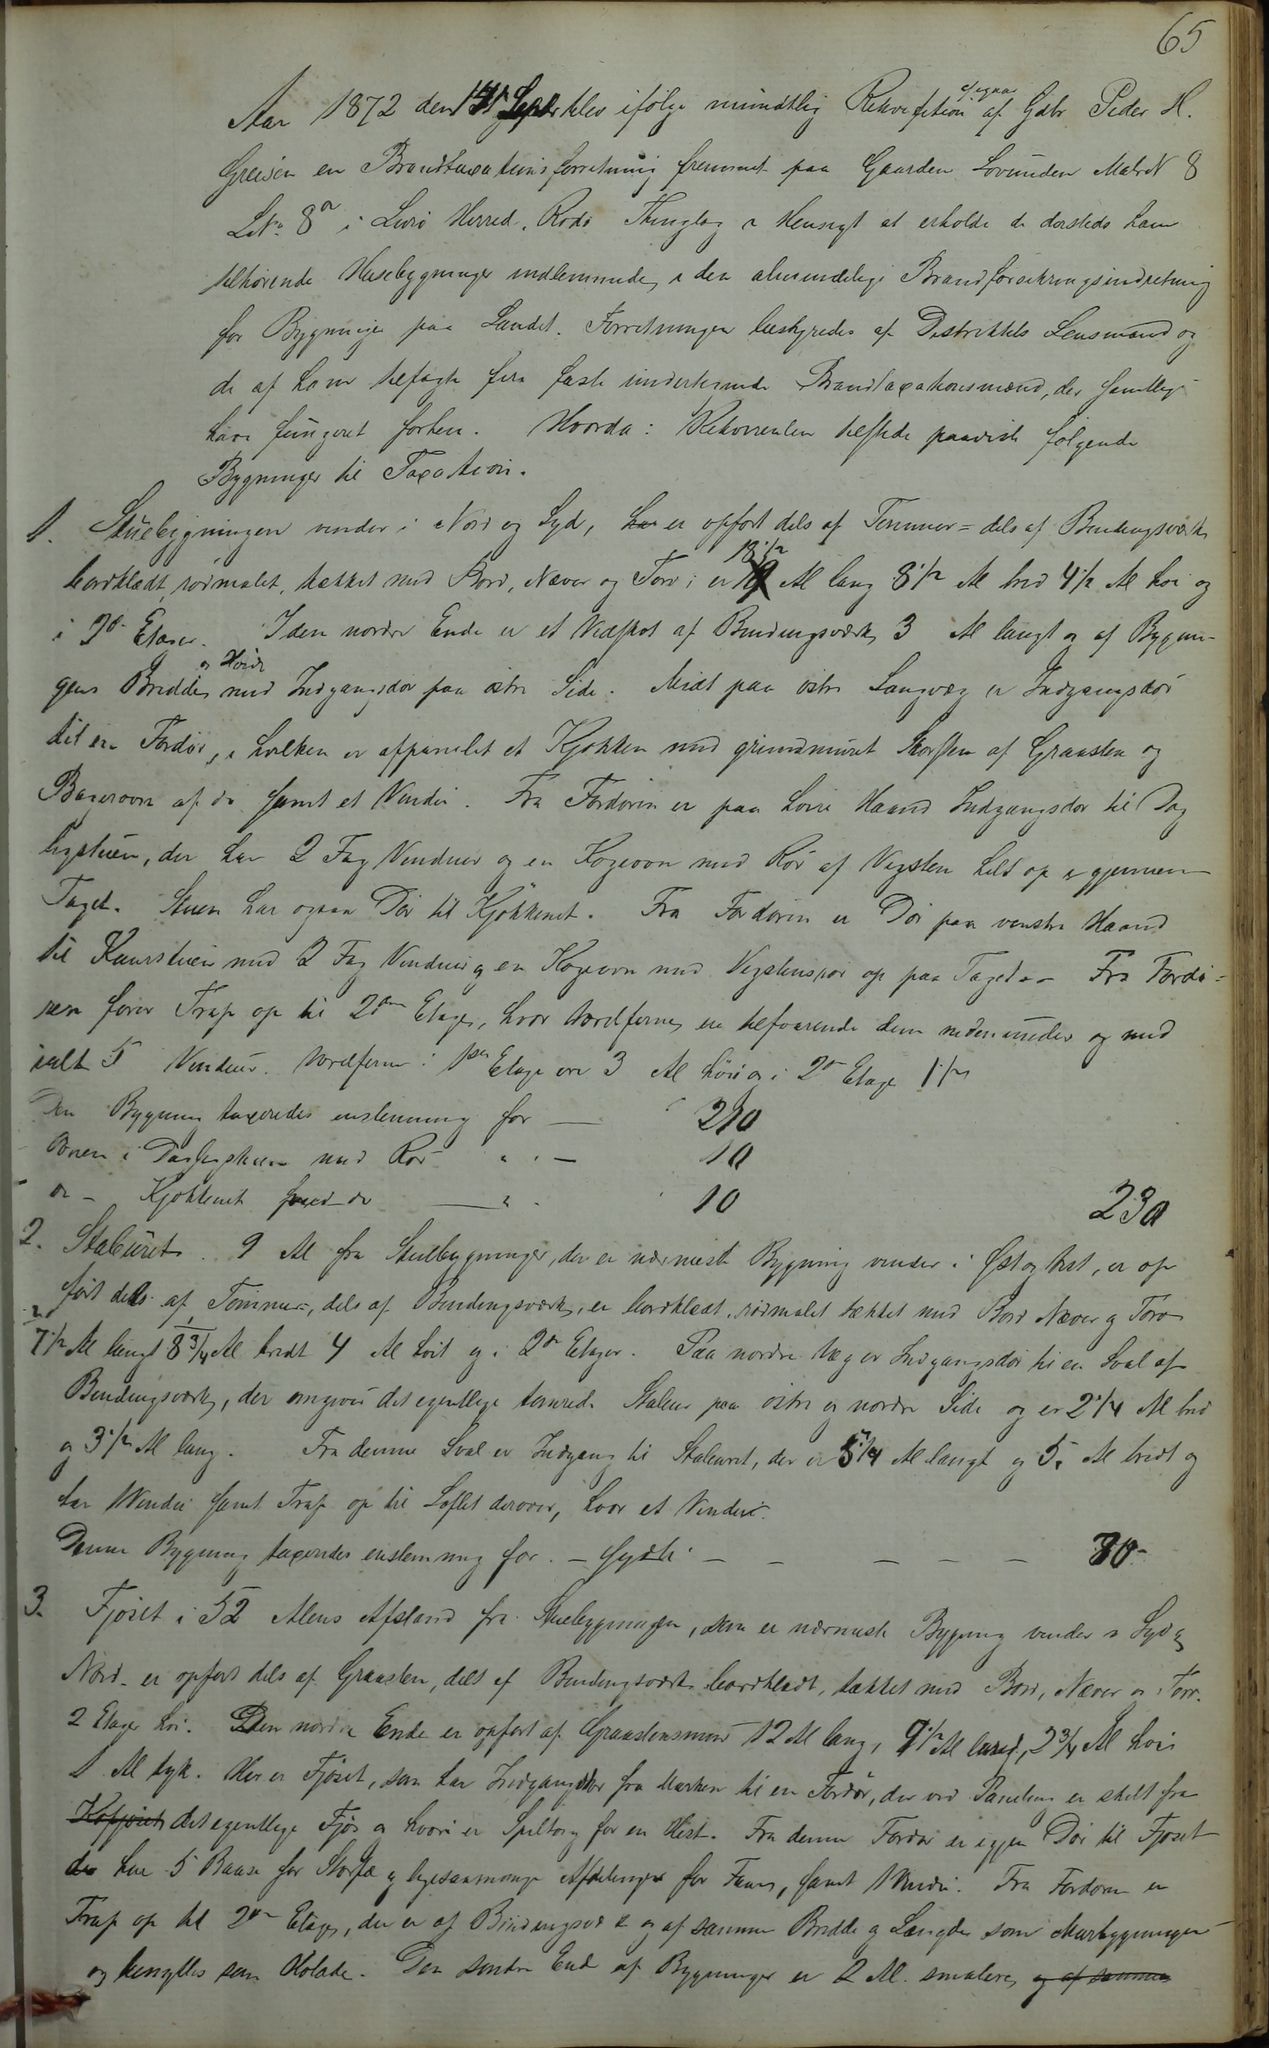 65
Aar 1872 den 14 Septbr blev ifølge mundtlig Rekvisition af Gdbr Peder H.
Greisen en Brandtaxationsforretning fremmet paa Gaarden Lovunden Matr N 8
LNo 8a i Lurö Herred, Rödö Thinglag i Hensigt at erholde de dersteds ham
tilhörende Husebygninger indlemmede i den almindelige Brandforsikringsindretning
for Bygninger paa Landet. Forretningen bestyredes af Distriktets Lensmand og
de af ham tilsagte fire faste undertegnede Brandtaxationsmænd, der samtlige
have fungeret forhen. Hvorda: Rekvirenten tilstede paaviste følgende
Bygninger til Taxation.
1. Stuebygningen vender i Nord og Syd, er opfört dels af Tömmer= dels af Bindingsværk,
bordklædt, rödmalet, tækket med Bord, Næver og Torv; er 18 1/2 Al lang 8 1/2 Al bred 4 1/2 Al höi og
i 2de Etager. I den nordre Ende er et Vedskot af Bindingsværk, 3 Al langt og af Bygnin-
gens Bredde og Höide med Indgangsdör paa östre Side. Midt paa östre Langvæg er Indgangsdör
til en Fordör, i hvilken er afpanelet et Kjökken med grundmuret Skorsten af Graasten og
Bagerovn af do samt et Vindu. Fra Fordören er paa höire Haand Indgangsdör til Dag
ligstuen, der har 2 Fag Vinduer og en Kogeovn med Rör af Vegsten helt op igjennem
Taget. Stuen har ogsaa Dör til Kjökkenet. Fra Fordören er Dör paa venstre Haand
til Kaarstuen med 2 Fag Vinduer og en Kogeovn med Vegstensrör op paa Taget.- Fra Fordö-
ren förer Trap op til 2den Etage, hvor Værelserne ere tilsvarende dem nedenunder og med
ialt 5 Vinduer. Værelserne i 1ste Etage ere 3 Al höie og i 2den Etage 1 1/2
Den Bygning taxeredes enstemmig for — 210
Ovnen i Dagligstuen med Rör " " — 10
do - Kjökkenet med do — " 10 230
2. Staburet. 9 Al fra Stuebygningen, der er nærmeste Bygning vender i Öst og Vest, er op
fört dels af Tömmer-, dels af Bindingsværk, er bordklædt, rödmalet tækket med Bord Næver og Torv
7 1/2 Al langt 8 3/4 Al bredt 4 Al höit og i 2de Etager. Paa nordre Væg er Indgangsdör til en Sval af
Bindingsværk, der omgiver det egentlige tömrede Stabur paa östre og nordre Side og er 2 1/4 Al bred
og 3 1/2 Al lang. Fra denne Sval er Indgang til Staburet, der er 5 1/4 Al langt og 5 Al bredt og
har 1 Vindu samt Trap op til Loftet derover, hvor et Vindu.
Denne Bygning taxeredes enstemmig for. — — — — — — 70-
3. Fjöset i 52 Alens Afstand fra Stuebygningen, som er nærmeste Bygning vender i Syd og
Nord. er opfört dels af Graasten, dels af Bindingsværk bordklædt, tækket med Bord, Næver og Torv.
2 Etager höi. Den nordre Ende er opfört af Graastensmur 12 Al lang, 9 1/2 Al bred, 2 3/4 Al höi
1 Al tyk. Her er Fjöset, som har Indgangsdör fra Marken til en Fordör, der ved Paneling er skilt fra
det egentlige Fjös og hvori er Spiltoug for en Hest. Fra denne Fordör er igjen Dör til Fjöset
der har 5 Baase for Storfæ og ligesaamange Afdelinger for Faar, samt 1 Vindu. Fra Fordören er
Trap op til 2den Etage, der er af Bindingsværk og af samme Bredde og Længde som Murbygningen
og benyttes som Hölade. Den söndre Ende af Bygningen er 2 Al. smalere, og af samme